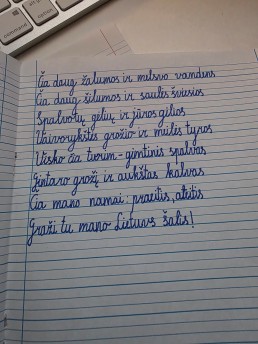 Čia daug žalumos ir melsvo vandens
Čia daug šilumos ir saulės šviesios
Spalvotų gėlių ir jūros gilios
Vaivorykštės grožio ir meilės tyros
Visko čia turim - gimtinės spalvas
Gintaro grožį ir aukštas kalvas
Čia mano namai, praeitis, ateitis
Graži tu mano Lietuvs šalis!
command